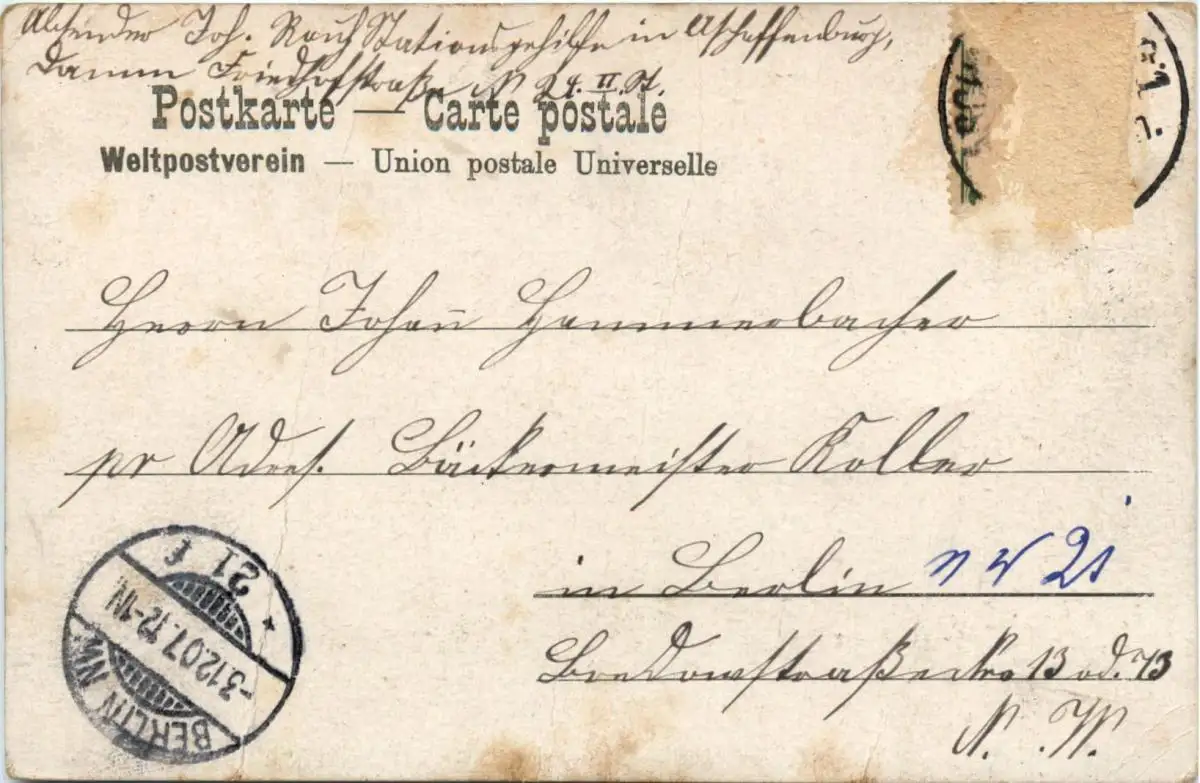 Absender Joh. Rauh Stationsgehilfe in Aschaffenburg,
Damm Friedhofstraße N 24. II. St.
Postkarte — Carte postale
Weltpostverein — Union postale Universelle
Herrn Johañ Hammerbacher
pr Adres. Bäckermeister Koller
in Berlin NW 21
Bredowstraße No 13 od. 73
N. W.
BERLIN NW
-3.12.07. 12-1N
21 f